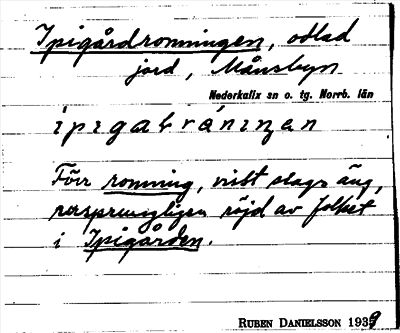 Ipigårdronningen, odlad
jord, Månsbyn
Nederkalix sn o. tg. Norrb. län
ipigaɫrǻniŋən
Förr ronning, vilbt slags äng,
ursprungligen röjd av folket
i Ipigården.
RUBEN DANIELSSON 1939